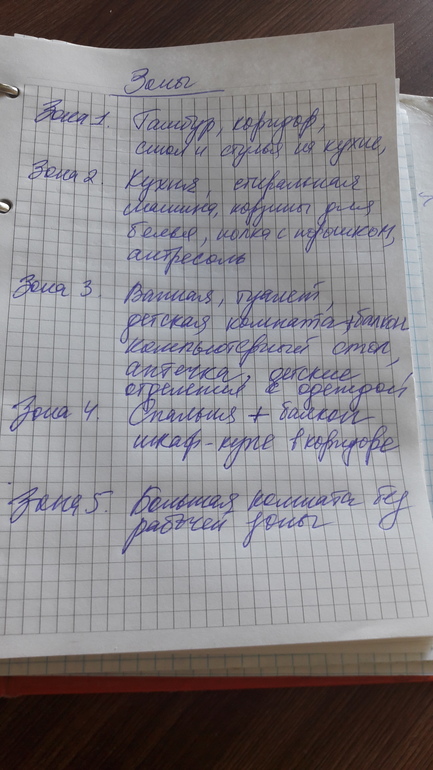 Зоны
Зона 1. Тамбур, коридор,
стол и стулья на кухне,
Зона 2. Кухня, стиральная
машина, корзины для
белья, полка с порошком,
антресоль
Зона 3. Ванная, туалет,
детская комната + балкон
компьютерный стол,
аптечка, детские
отделения с одеждой
Зона 4. Спальня + балкон
шкаф-купе в коридоре
Зона 5. Большая комната без
рабочей зоны